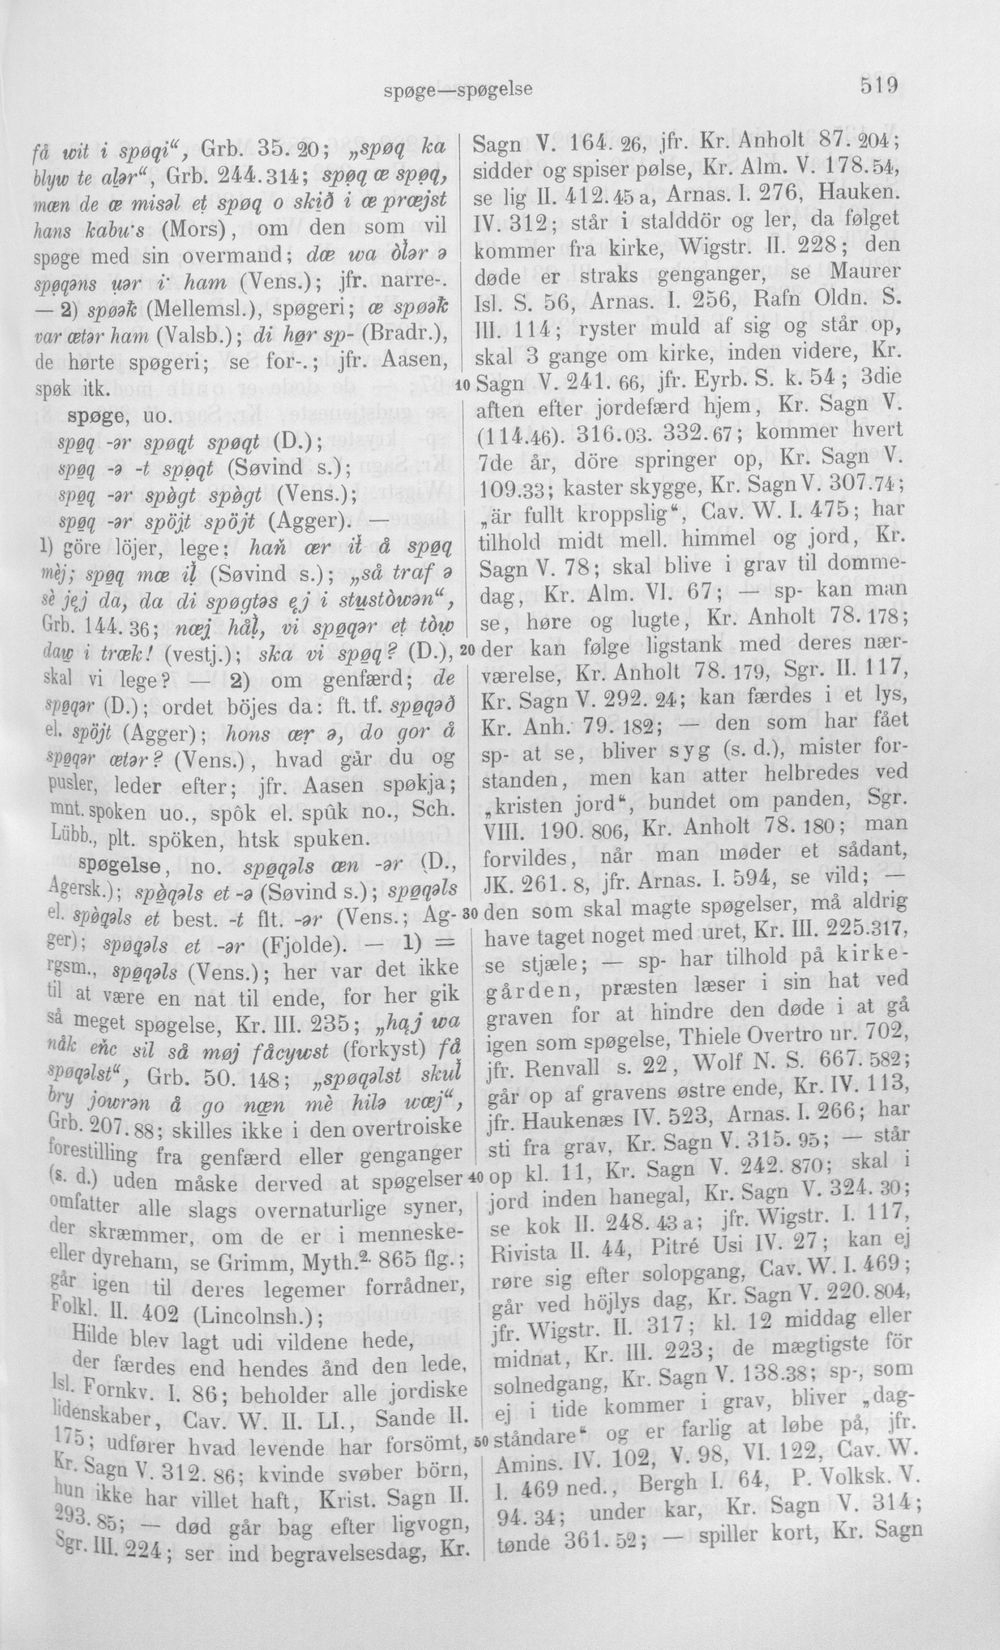 spøge—spøgelse 519
få wit i spøqi“, Grb. 35. 20; „spøq ka
blyw te alər“, Grb. 244. 314; spøq œ spøq,
mœn de œ misəl et spøq o skið i œ prœjst
hans kabu's (Mors), om den som vil
spøge med sin overmand; dœ wa òlər ə
spøqəns uər i' ham (Vens.); jfr. narre-.
— 2) spøək (Mellemsl.), spøgeri; œ spøək
var œtər ham (Valsb.); di hør sp- (Bradr.),
de hørte spøgeri; se for-.; jfr. Aasen,
spøk itk.
spøge, uo.
spøq -ər spøqt spøqt (D.);
spøq -ə -t spøqt (Søvind s.);
spøq -ər spògt spògt (Vens.);
spøq -ər spöjt spöjt (Agger). —
1) göre löjer, lege; hań œr it å spøq
mèj; spøq mœ il (Søvind s.); „så traf ə
sè jej da, da di spøgtəs ej i stustòwən“,
Grb. 144. 36; nœj hål, vi spøqər et tòw
daw i trœk! (vestj.); ska vi spøq? (D.),
skal vi lege? — 2) om genfærd; de
spøqər (D.); ordet böjes da: ft. tf. spøqəð
el. spöjt (Agger); hons œr ə, do gor å
spøqər œtər? (Vens.), hvad går du og
pusler, leder efter; jfr. Aasen spøkja;
mnt. spoken uo., spôk el. spûk no., Sch.
Lübb., plt. spöken, htsk spuken.
spøgelse, no. spøqəls œn -ər (D.,
Agersk.); spòqəls et -ə (Søvind s.); spøqəls
el. spòqəls et best. -t flt. -ər (Vens.; Ag-
ger); spøqəls et -ər (Fjolde). — 1) =
rgsm., spøqəls (Vens.); her var det ikke
til at være en nat til ende, for her gik
så meget spøgelse, Kr. III. 235; „haj wa
nåk eńc sil så møj fåcywst (forkyst) få
spøqəlst“, Grb. 50. 148; „spøqəlst skul
bry jowrən å go nœn mè hilə wœj“,
Grb. 207. 88; skilles ikke i den overtroiske
forestilling fra genfærd eller genganger
(s. d.) uden måske derved at spøgelser
omfatter alle slags overnaturlige syner,
der skræmmer, om de er i menneske-
eller dyreham, se Grimm, Myth.² 865 flg.;
går igen til deres legemer forrådner,
Folkl. II. 402 (Lincolnsh.);
Hilde blev lagt udi vildene hede,
der færdes end hendes ånd den lede,
Isl. Fornkv. I. 86; beholder alle jordiske
lidenskaber, Cav. W. II. LI., Sande II.
175; udfører hvad levende har forsömt,
Kr. Sagn V. 312. 86; kvinde svøber börn,
hun ikke har villet haft, Krist. Sagn II.
293. 85; — død går bag efter ligvogn,
Sgr. III. 224; ser ind begravelsesdag, Kr.
Sagn V. 164. 26, jfr. Kr. Anholt 87. 204;
sidder og spiser pølse, Kr. Alm. V. 178. 54,
se lig II. 412. 45 a, Arnas. I. 276, Hauken.
IV. 312; står i stalddör og ler, da følget
kommer fra kirke, Wigstr. II. 228; den
døde er straks genganger, se Maurer
Isl. S. 56, Arnas. I. 256, Rafn Oldn. S.
III. 114; ryster muld af sig og står op,
skal 3 gange om kirke, inden videre, Kr.
10 Sagn V. 241. 66, jfr. Eyrb. S. k. 54; 3die
aften efter jordefærd hjem, Kr. Sagn V.
(114.46). 316.03. 332.67; kommer hvert
7de år, döre springer op, Kr. Sagn V.
109.33; kaster skygge, Kr. Sagn V. 307.74;
„är fullt kroppslig“, Cav. W. I. 475; har
tilhold midt mell. himmel og jord, Kr.
Sagn V. 78; skal blive i grav til domme-
dag, Kr. Alm. VI. 67; — sp- kan man
se, høre og lugte, Kr. Anholt 78. 178;
20 der kan følge ligstank med deres nær-
værelse, Kr. Anholt 78. 179, Sgr. II. 117,
Kr. Sagn V. 292. 24; kan færdes i et lys,
Kr. Anh. 79. 182; — den som har fået
sp- at se, bliver syg (s. d.), mister for-
standen, men kan atter helbredes ved
„kristen jord“, bundet om panden, Sgr.
VIII. 190. 806, Kr. Anholt 78. 180; man
forvildes, når man møder et sådant,
JK. 261. 8, jfr. Arnas. I. 594, se vild; —
30 den som skal magte spøgelser, må aldrig
have taget noget med uret, Kr. III. 225.317,
se stjæle; — sp- har tilhold på kirke-
gården, præsten læser i sin hat ved
graven for at hindre den døde i at gå
igen som spøgelse, Thiele Overtro nr. 702,
jfr. Renvall s. 22, Wolf N. S. 667. 582;
går op af gravens østre ende, Kr. IV. 113,
jfr. Haukenæs IV. 523, Arnas. I. 266; har
sti fra grav, Kr. Sagn V. 315. 95; — står
40 op kl. 11, Kr. Sagn V. 242. 870; skal i
jord inden hanegal, Kr. Sagn V. 324. 30;
se kok II. 248. 43 a; jfr. Wigstr. I. 117,
Rivista II. 44, Pitré Usi IV. 27; kan ej
røre sig efter solopgang, Cav. W. I. 469;
går ved höjlys dag, Kr. Sagn V. 220. 804,
jfr. Wigstr. II. 317; kl. 12 middag eller
midnat, Kr. III. 223; de mægtigste för
solnedgang, Kr. Sagn V. 138.38; sp-, som
ej i tide kommer i grav, bliver „dag-
50 ståndare“ og er farlig at løbe på, jfr.
Amins. IV. 102, V. 98, VI. 122, Cav. W.
I. 469 ned., Bergh I. 64, P. Volksk. V.
94. 34; under kar, Kr. Sagn V. 314;
tønde 361. 52; — spiller kort, Kr. Sagn